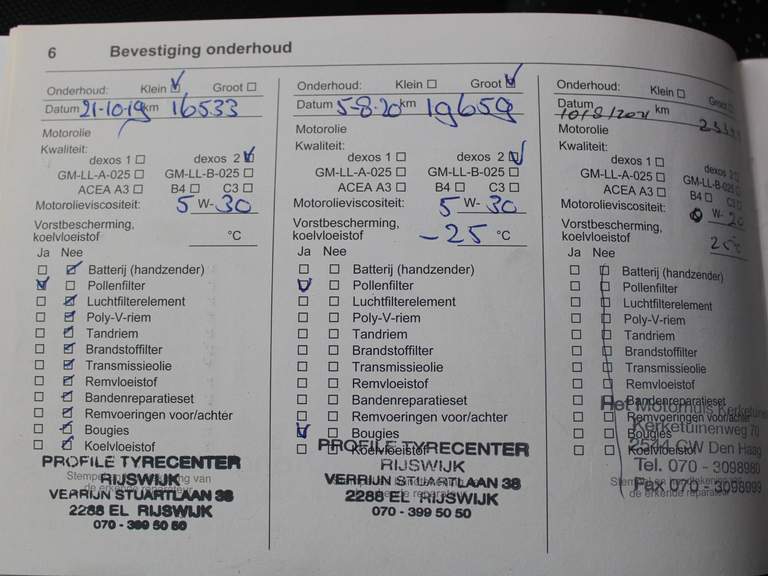 6 Bevestiging onderhoud
Onderhoud: Klein Groot
Datum 21-10-19 km 16533
Motorolie
Kwaliteit:
dexos 1 dexos 2
GM-LL-A-025 GM-LL-B-025
ACEA A3 B4 C3
Motorolieviscositeit: 5 W- 30
Vorstbescherming,
koelvloeistof °C
Ja Nee
Batterij (handzender)
Pollenfilter
Luchtfilterelement
Poly-V-riem
Tandriem
Brandstoffilter
Transmissieolie
Remvloeistof
Bandenreparatieset
Remvoeringen voor/achter
Bougies
Koelvloeistof
PROFILE TYRECENTER
RIJSWIJK
VERRIJN STUARTLAAN 38
2288 EL RIJSWIJK
070 - 399 50 50
Onderhoud: Klein Groot
Datum 5-8-20 km 19659
Motorolie
Kwaliteit:
dexos 1 dexos 2
GM-LL-A-025 GM-LL-B-025
ACEA A3 B4 C3
Motorolieviscositeit: 5 W- 30
Vorstbescherming,
koelvloeistof -25 °C
Ja Nee
Batterij (handzender)
Pollenfilter
Luchtfilterelement
Poly-V-riem
Tandriem
Brandstoffilter
Transmissieolie
Remvloeistof
Bandenreparatieset
Remvoeringen voor/achter
Bougies
Koelvloeistof
PROFILE TYRECENTER
RIJSWIJK
VERRIJN STUARTLAAN 38
2288 EL RIJSWIJK
070 - 399 50 50
Onderhoud: Klein Groot
Datum 10/8/2021 km
Motorolie
Kwaliteit:
dexos 1 dexos 2
GM-LL-A-025 GM-LL-B-025
ACEA A3 B4 C3
Motorolieviscositeit: 0 W- 20
Vorstbescherming,
koelvloeistof 25 °C
Ja Nee
Batterij (handzender)
Pollenfilter
Luchtfilterelement
Poly-V-riem
Tandriem
Brandstoffilter
Transmissieolie
Remvloeistof
Bandenreparatieset
Remvoeringen voor/achter
Bougies
Koelvloeistof
Het Motorhuis Kerketuinen
Kerketuinenweg 70
2544 CW Den Haag
Tel. 070 - 3098980
Fax 070 - 3098999